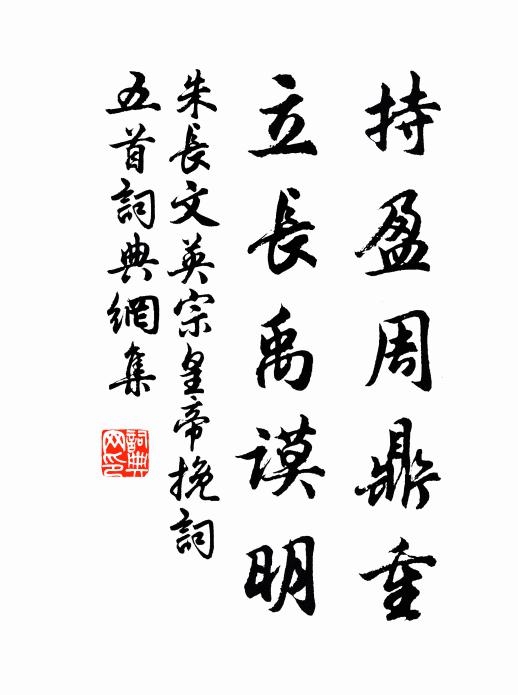 持盈周鼎重
立長禹謨明
朱長文英宗皇帝挽詞
五首詞典網集
詞典
網印